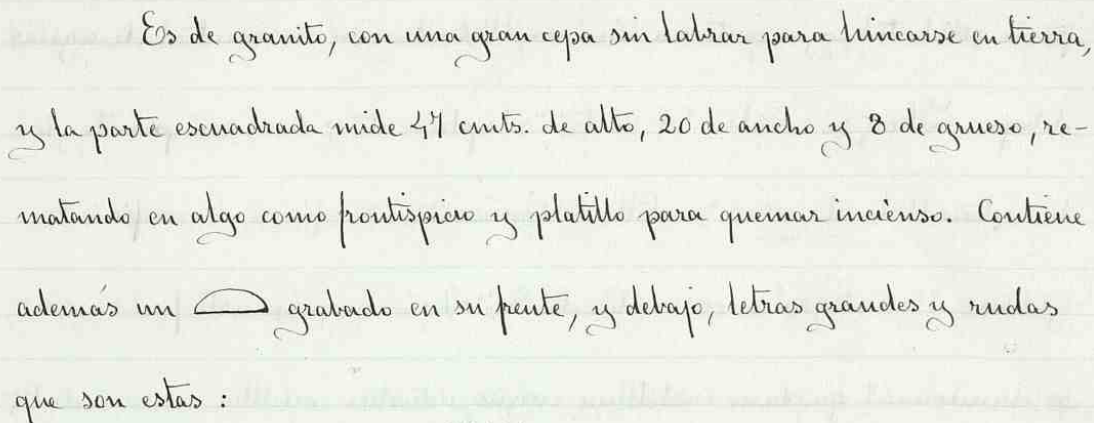 Es de granito, con una gran cepa sin labrar para hincarse en tierra,
y la parte escuadrada mide 47 cmts. de alto, 20 de ancho y 8 de grueso, re-
matando en algo como frontispicio y platillo para quemar incienso. Contiene
además un grabado en su frente, y debajo, letras grandes y rudas
que son estas :